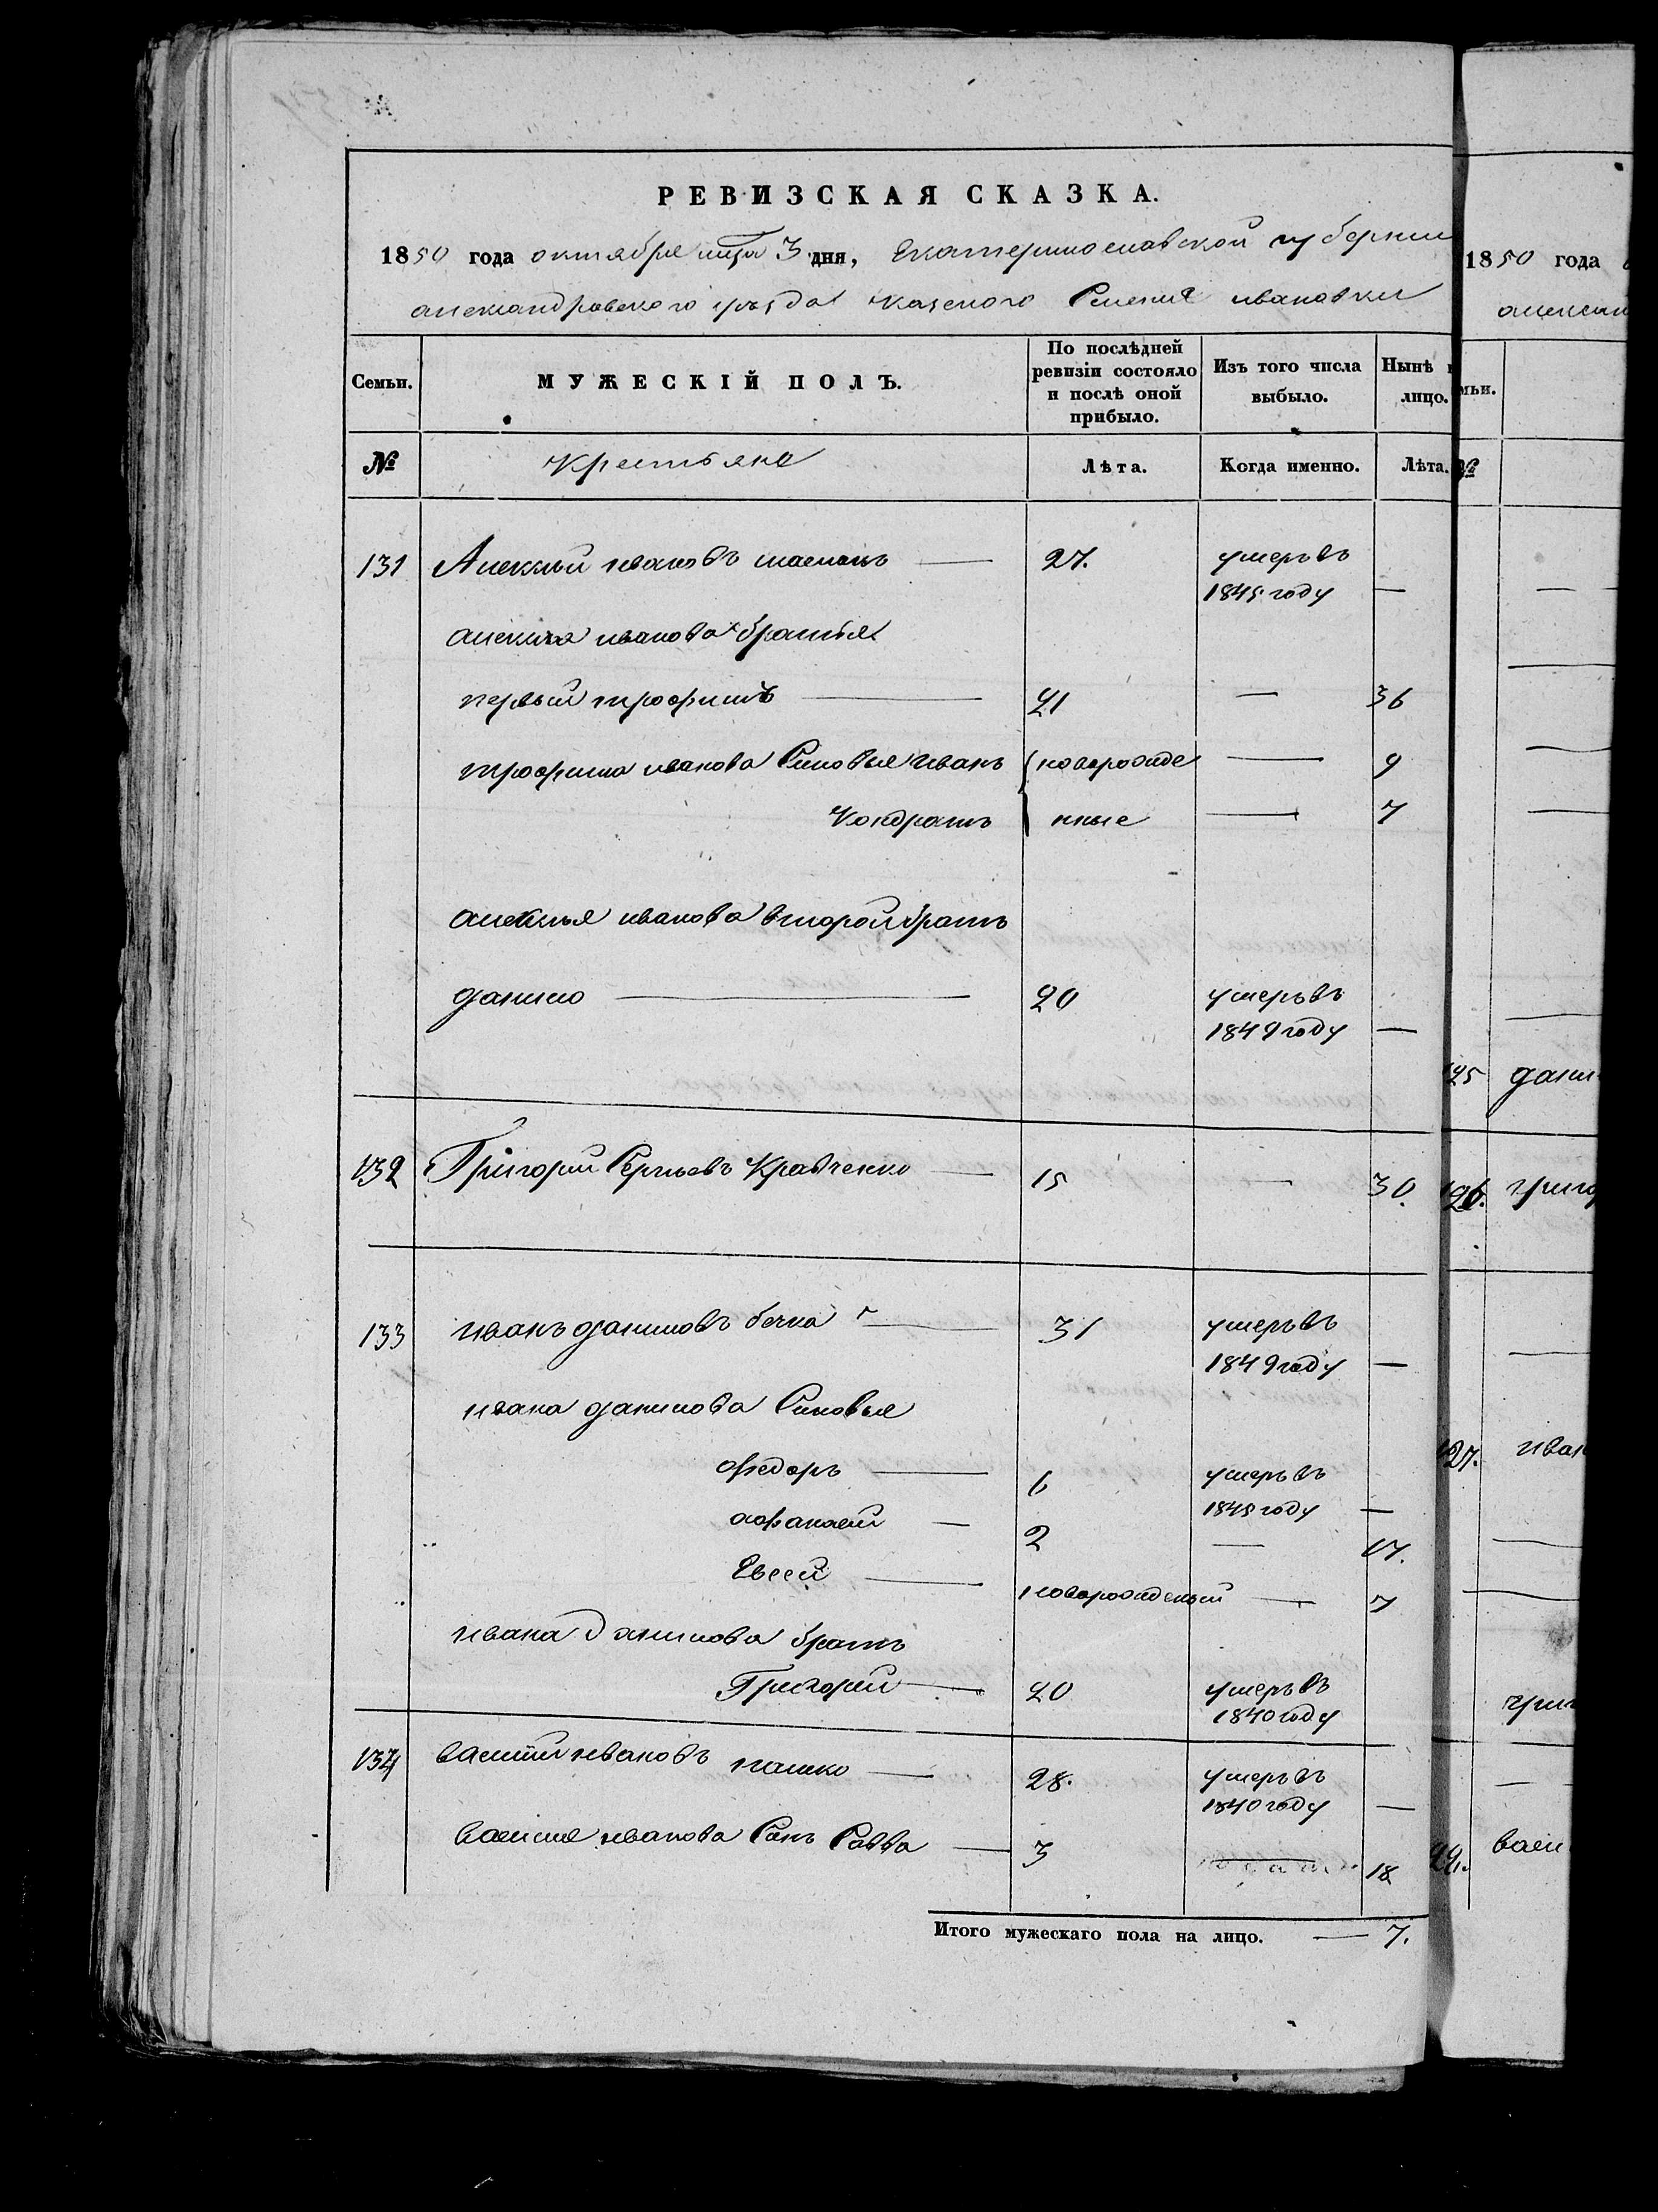 РЕВИЗСКАЯ СКАЗКА.
1850 года октября мца 3 дня, Екатеринославской губернии
александровского уезда казеного Селения ивановки
Семьи. МУЖЕСКІЙ ПОЛЪ. По послѣдней ревизіи состояло и послѣ оной прибыло. Изъ того числа выбыло. Нынѣ лицо.
№ Крестьяне Лѣта. Когда именно. Лѣта.
131 Алексѣй ивановъ 27. умеръ въ
1845 году —
алексея иванова братья
первый трофимъ — 21 — 36
трофима иванова Сыновья иванъ новорожде — 9
Кондратъ нные — 7
алексѣя иванова второй братъ
данило — 20 умеръ въ
1849 году —
132 Григорий Сергѣевъ Кравченко — 15 — 30.
133 иванъ даниловъ бечка — 31 умеръ въ
1849 году —
ивана данилова Сыновья
федоръ — 6 умеръ въ
1845 году —
афанасий — 2 — 17.
Евсей — новорожденый — 7
ивана данилова братъ
Григорий — 20 умеръ въ
1840 году
134 василий ивановъ пашко — 28. умеръ въ
1840 году —
василия иванова Сынъ Савва — 3 — 18
Итого мужескаго пола на лицо. — 7.
1850 года
мьи.
№
125 дани
126. григо
127. иван
григ
васи